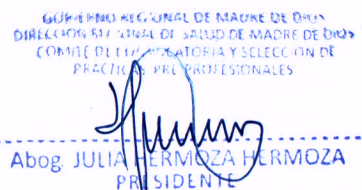 GOBIERNO REGIONAL DE MADRE DE DIOS
DIRECCION REGIONAL DE SALUD DE MADRE DE DIOS
COMITÉ DE CONVOCATORIA Y SELECCION DE
PRACTICAS PRE PROFESIONALES
Abog. JULIA HERMOZA HERMOZA
PRESIDENTE